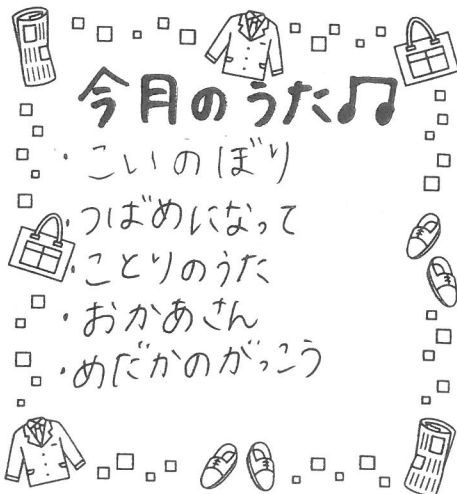 今月のうた♫
・こいのぼり
・つばめになって
・ことりのうた
・おかあさん
・めだかのがっこう